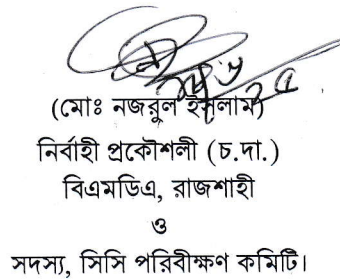 (মোঃ নজরুল ইসলাম)
নির্বাহী প্রকৌশলী (চ.দা.)
বিএমডিএ, রাজশাহী
ও
সদস্য, সিসি পরিবীক্ষণ কমিটি।